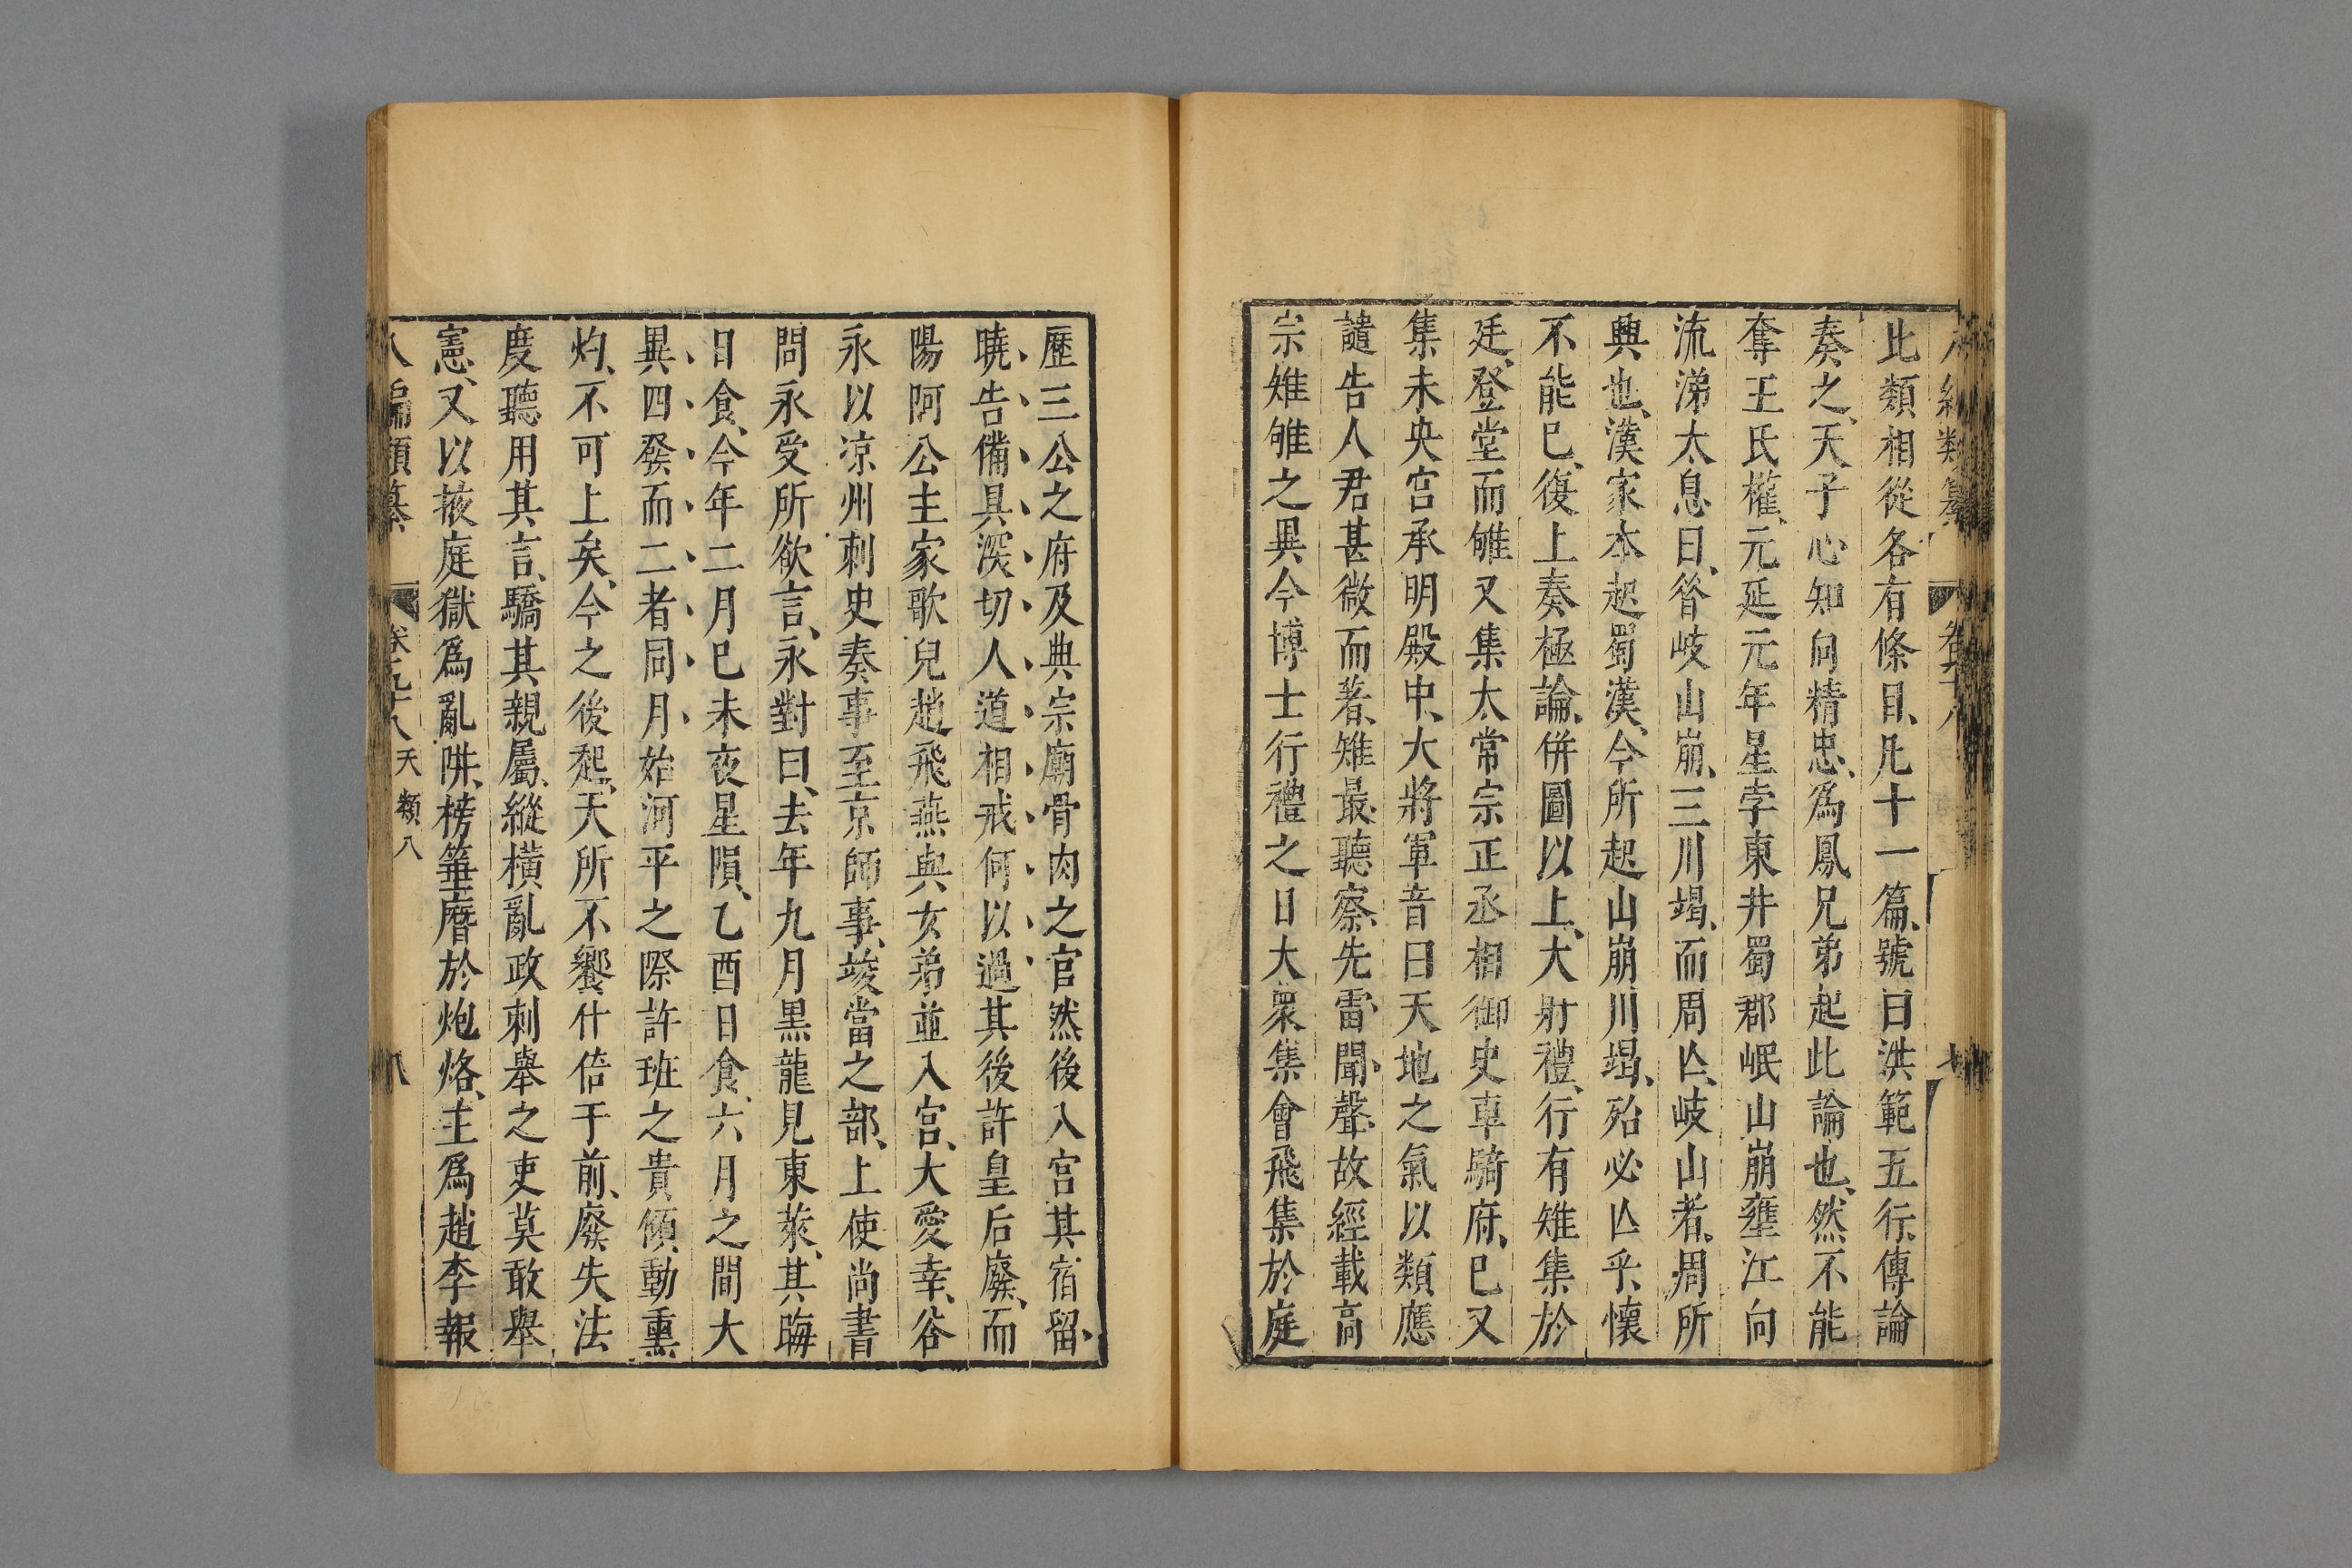 比類相從各有條目、凡十一篇、號曰洪範五行傳論
奏之、天子心知向精忠、爲鳳兄弟起此論也、然不能
奪王氏權、元延元年星孛東井蜀郡岷山崩壅江向
流涕太息曰、昝岐山崩、三川竭、而周亾、岐山者、周所
興也、漢家本起蜀漢、今所起山崩川竭、殆必亾乎、懷
不能已、復上奏極論、併圖以上、大射禮、行有雉集於
廷、登堂而雊又集太常宗正丞相御史車騎府、已又
集未央宫承明殿中、大將軍音曰天地之氣以類應
譴告人君甚微而著、雉最聽察、先雷聞聲、故經載高
宗雉雊之異今博士行禮之日大衆集會飛集於庭
歷三公之府及典宗廟骨肉之官然後入宫其宿留、
曉告備具深切人道相戒何以過其後許皇后廢、而
陽阿公主家歌兒趙飛燕與女弟並入宫、大愛幸、谷
永以凉州刺史奏事至京師事、竣當之部、上使尚書
問永受所欲言、永對曰、去年九月黒龍見東萊、其晦
日食、今年二月巳未夜星隕、乙酉日食、六月之間大
異四發而二者同月始河平之際許班之貴傾、動熏
灼、不可上矣、今之後起、天所不饗什倍于前、廢失法
度聽用其言、驕其親屬、縱橫亂政刺舉之吏莫敢舉
憲、又以掖庭獄爲亂阱、榜箠㿊於炮烙、主爲趙李報
八編類纂 卷五十八 天類八 八